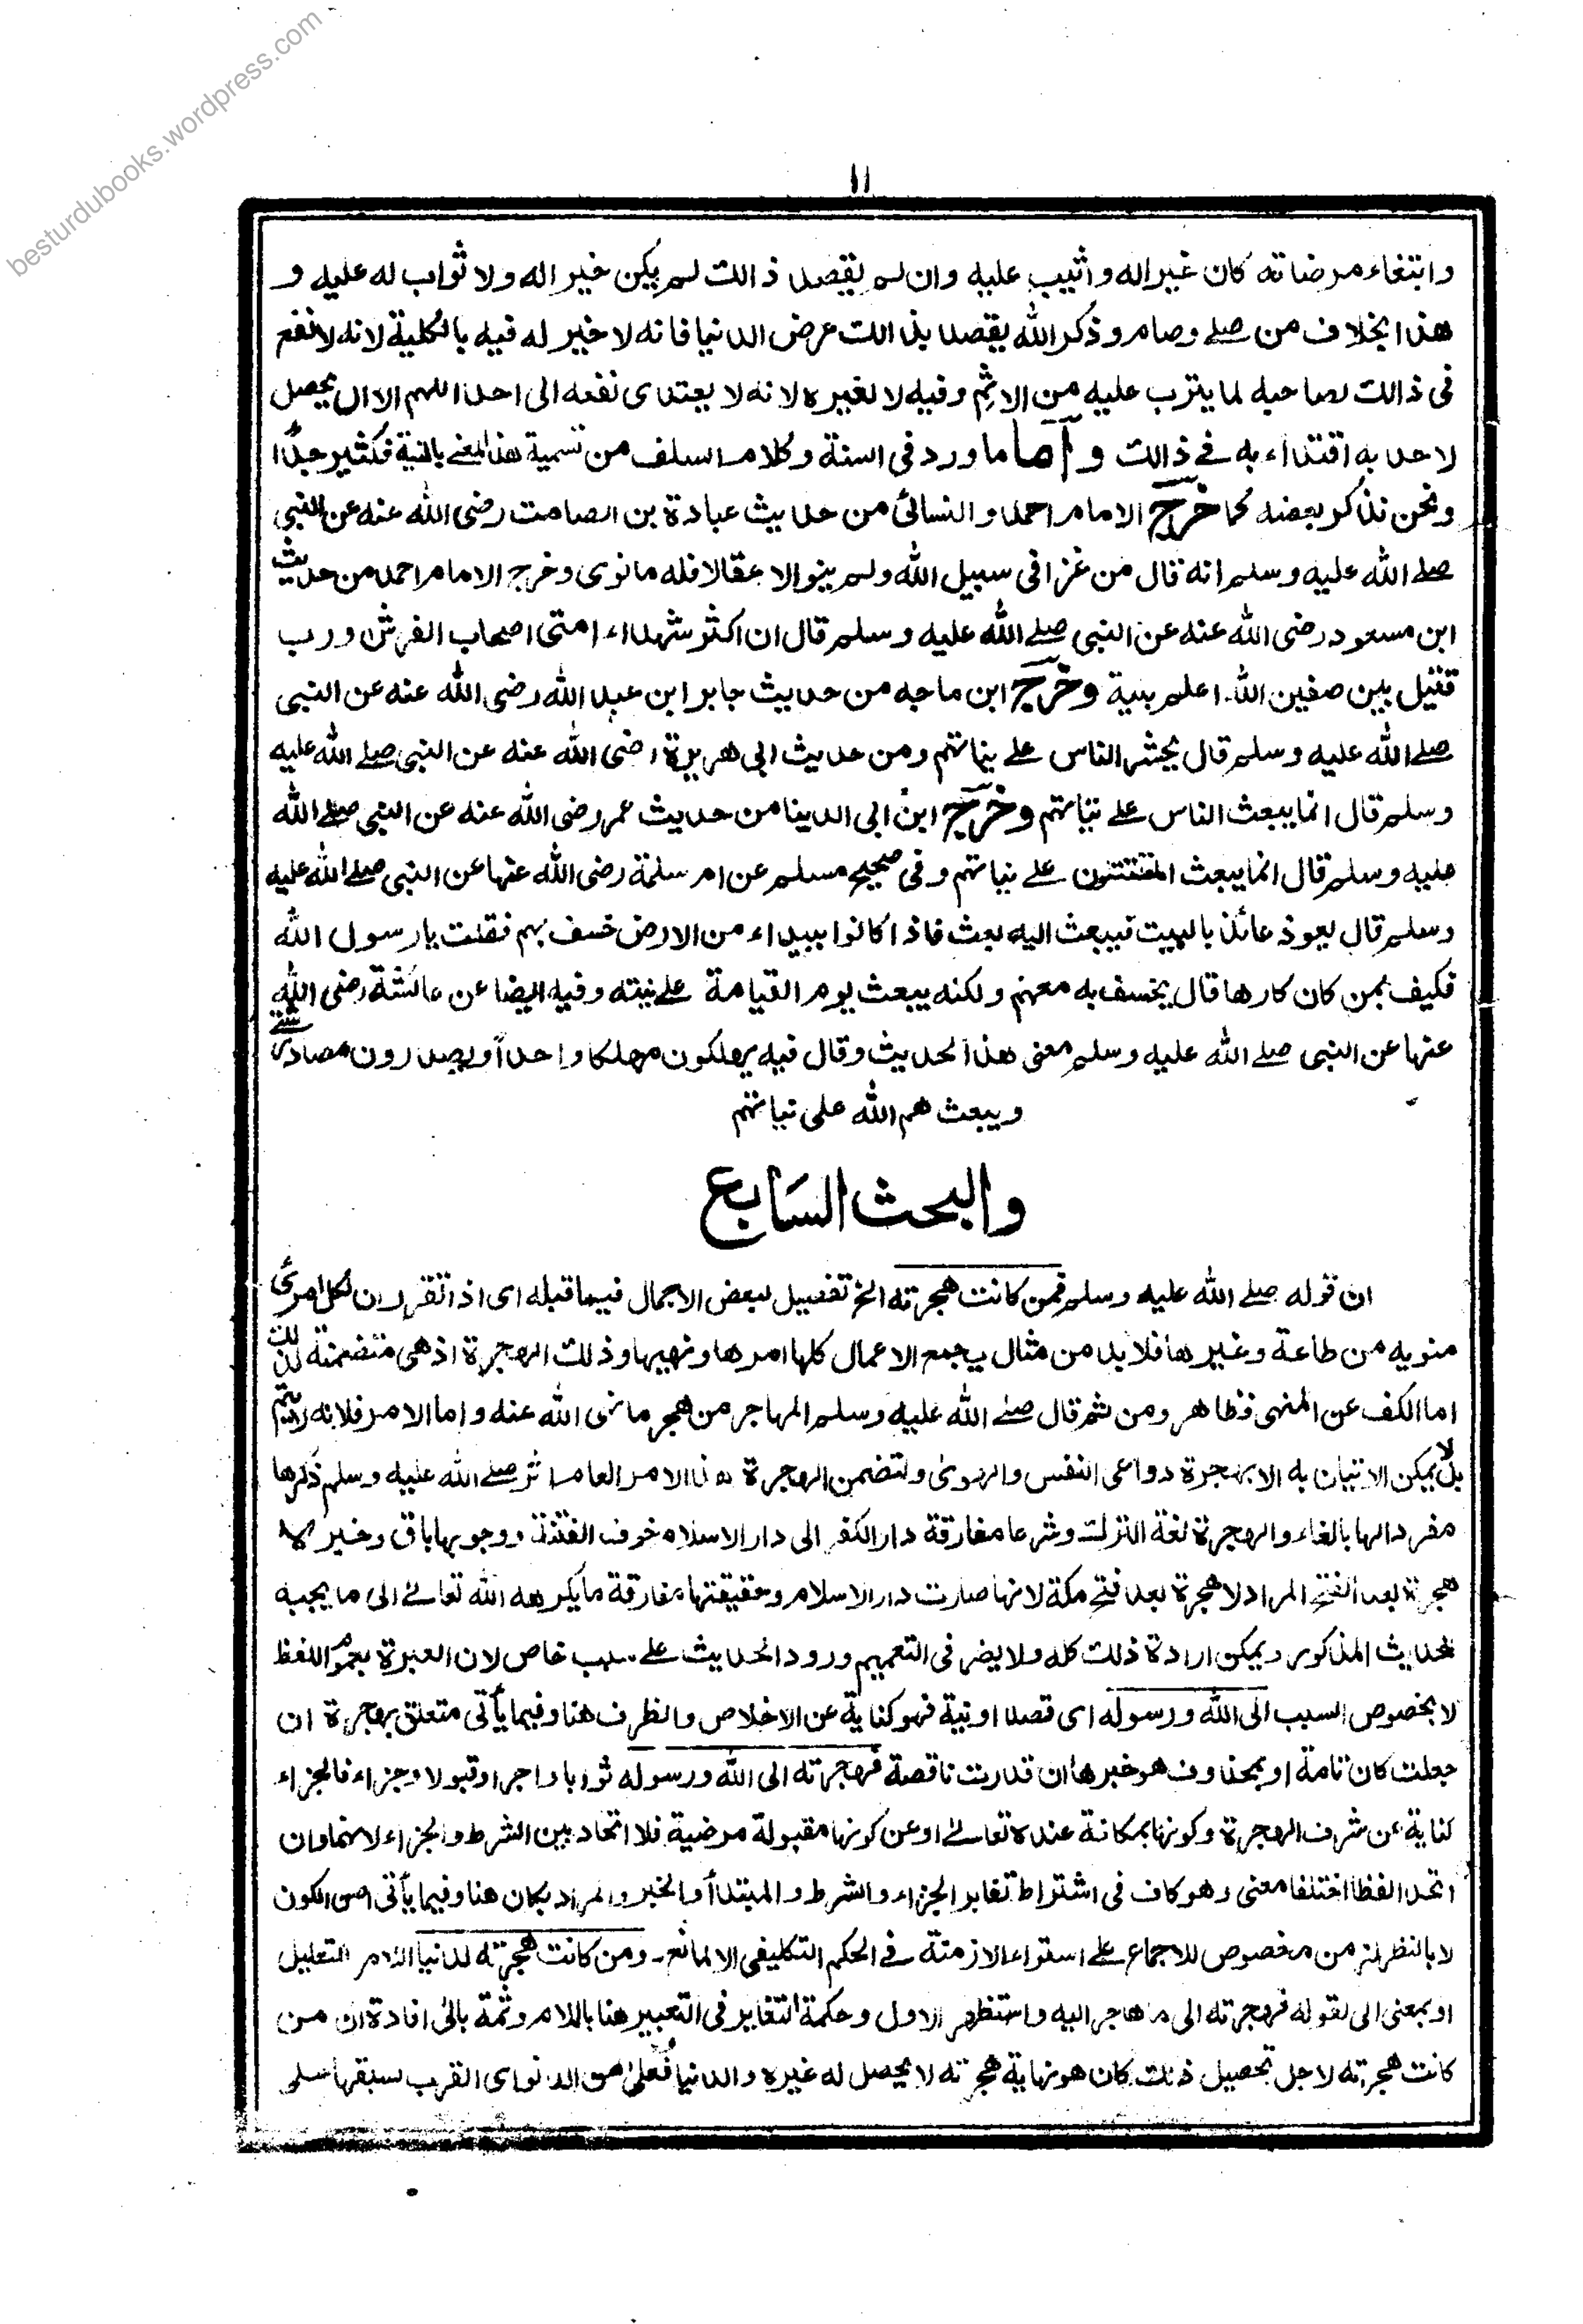 besturdubooks.wordpress.com
١١
وابتغاء مرضاته كان خيرا له و أثيب عليه وان لم يقصد ذالك لم يكن خيرا له ولا ثواب له عليه و
هذا بخلاف من صلے وصام و ذكر الله يقصد بذالك عرض الدنيا فانه لا خير له فيه بالكلية لانه لا نفع
فى ذالك لصاحبه لما يترب عليه من الاثم وفيه لا لغيره لانه لا يعتدى نفعه الى احد اللهم الا ان يحصل
لاحد به اقتداء به فے ذالك وأما ما ورد فى السنة وكلام السلف من تسمية هذا المعنے بالنية فكثير جدًا
ونحن نذكر بعضه كما خرج الامام احمد و النسائى من حديث عبادة بن الصامت رضى الله عنه عن النبى
صلے الله عليه وسلم انه قال من غزا فى سبيل الله ولم ينو الا عقالا فله ما نوى وخرج الامام احمد من حديث
ابن مسعود رضى الله عنه عن النبى صلے الله عليه وسلم قال ان اكثر شهداء امتى اصحاب الفرش ورب
قتيل بين صفين الله اعلم بنية وخرج ابن ماجه من حديث جابر ابن عبد الله رضى الله عنه عن النبى
صلے الله عليه وسلم قال يحشر الناس علے نياتهم ومن حديث ابى هريرة رضى الله عنه عن النبى صلے الله عليه
وسلم قال انما يبعث الناس علے نياتهم وخرج ابن ابى الدينا من حديث عمر رضى الله عنه عن النبى صلے الله
عليه وسلم قال انما يبعث المقتتلون علے نياتهم وفى صحيح مسلم عن ام سلمة رضى الله عنها عن النبى صلے الله عليه
وسلم قال يعوذ عائذ بالبيت فيبعث اليه بعث فاذا كانوا ببيداء من الارض خسف بهم فقلت يا رسول الله
فكيف بمن كان كارها قال يخسف به معهم ولكنه يبعث يوم القيامة علے نيته وفيه ايضا عن عائشة رضى الله
عنها عن النبى صلے الله عليه وسلم معنى هذا الحديث وقال فيه يهلكون مهلكا واحدًا ويصدرون مصادر شتے
ويبعث هم الله على نياتهم
والبحث السَابع
ان قوله صلے الله عليه وسلم فمن كانت هجرته الخ تفصيل لبعض الاجمال فيما قبله اى اذا تقرر ان لكل امرئ
منويه من طاعة وغيرها فلا بد من مثال يجمع الاعمال كلها امرها ونهيها وذلك الهجرة اذ هى متضمنة لذلك
اما الكف عن المنهى فظاهر ومن ثم قال صلے الله عليه وسلم المهاجر من هجر ما نهى الله عنه و اما الامر فلانه لا يتم
بل لا يمكن الاتيان به الا بهجرة دواعى النفس والهوى ولتضمن الهجرة هذا الامر العام اثر صلے الله عليه وسلم ذكرها
مفردا لها بالفاء والهجرة لغة الترك وشرعا مفارقة دار الكفر الى دار الاسلام خوف الفتنة ووجوبها باق وخبر لا
هجرة بعد الفتح المراد لا هجرة بعد فتح مكة لانها صارت دار الاسلام وحقيقتها مفارقة ما يكرهه الله تعالے الى ما يحبه
للحديث المذكور ويمكن ارادة ذلك كله ولا يضر فى التعميم ورود الحديث علے سبب خاص لان العبرة بعموم اللفظ
لا بخصوص السبب الى الله ورسوله اى قصدا او نية فهو كناية عن الاخلاص والظرف هنا وفيما يأتى متعلق بهجرة ان
جعلت كان تامة او بمحذوف هو خبرها ان قدرت ناقصة فهجرته الى الله ورسوله ثوابا واجرا وقبولا وجزاء فالجزاء
كناية عن شرف الهجرة وكونها بمكانة عنده تعالے او عن كونها مقبولة مرضية فلا اتحاد بين الشرط والجزاء لانهما وان
اتحدا لفظا اختلفا معنى وهو كاف فى اشتراط تغاير الجزاء والشرط و المبتدأ والخبر والمراد بكان هنا وفيما يأتى اصل الكون
لا بالنظر لزمن مخصوص للاجماع علے استواء الازمنة فے الحكم التكليفى الا لمانع۔ ومن كانت هجرته لدنيا اللام للتعليل
او بمعنى الى لقوله فهجرته الى ما هاجر اليه واستظهر الاول وحكمة التغاير فى التعبير هنا باللام وثمة بالى افادة ان من
كانت هجرته لاجل تحصيل ذلك كان هو نهاية هجرته لا يحصل له غيره والدنيا فُعلى من الدنو اى القرب لسبقها على